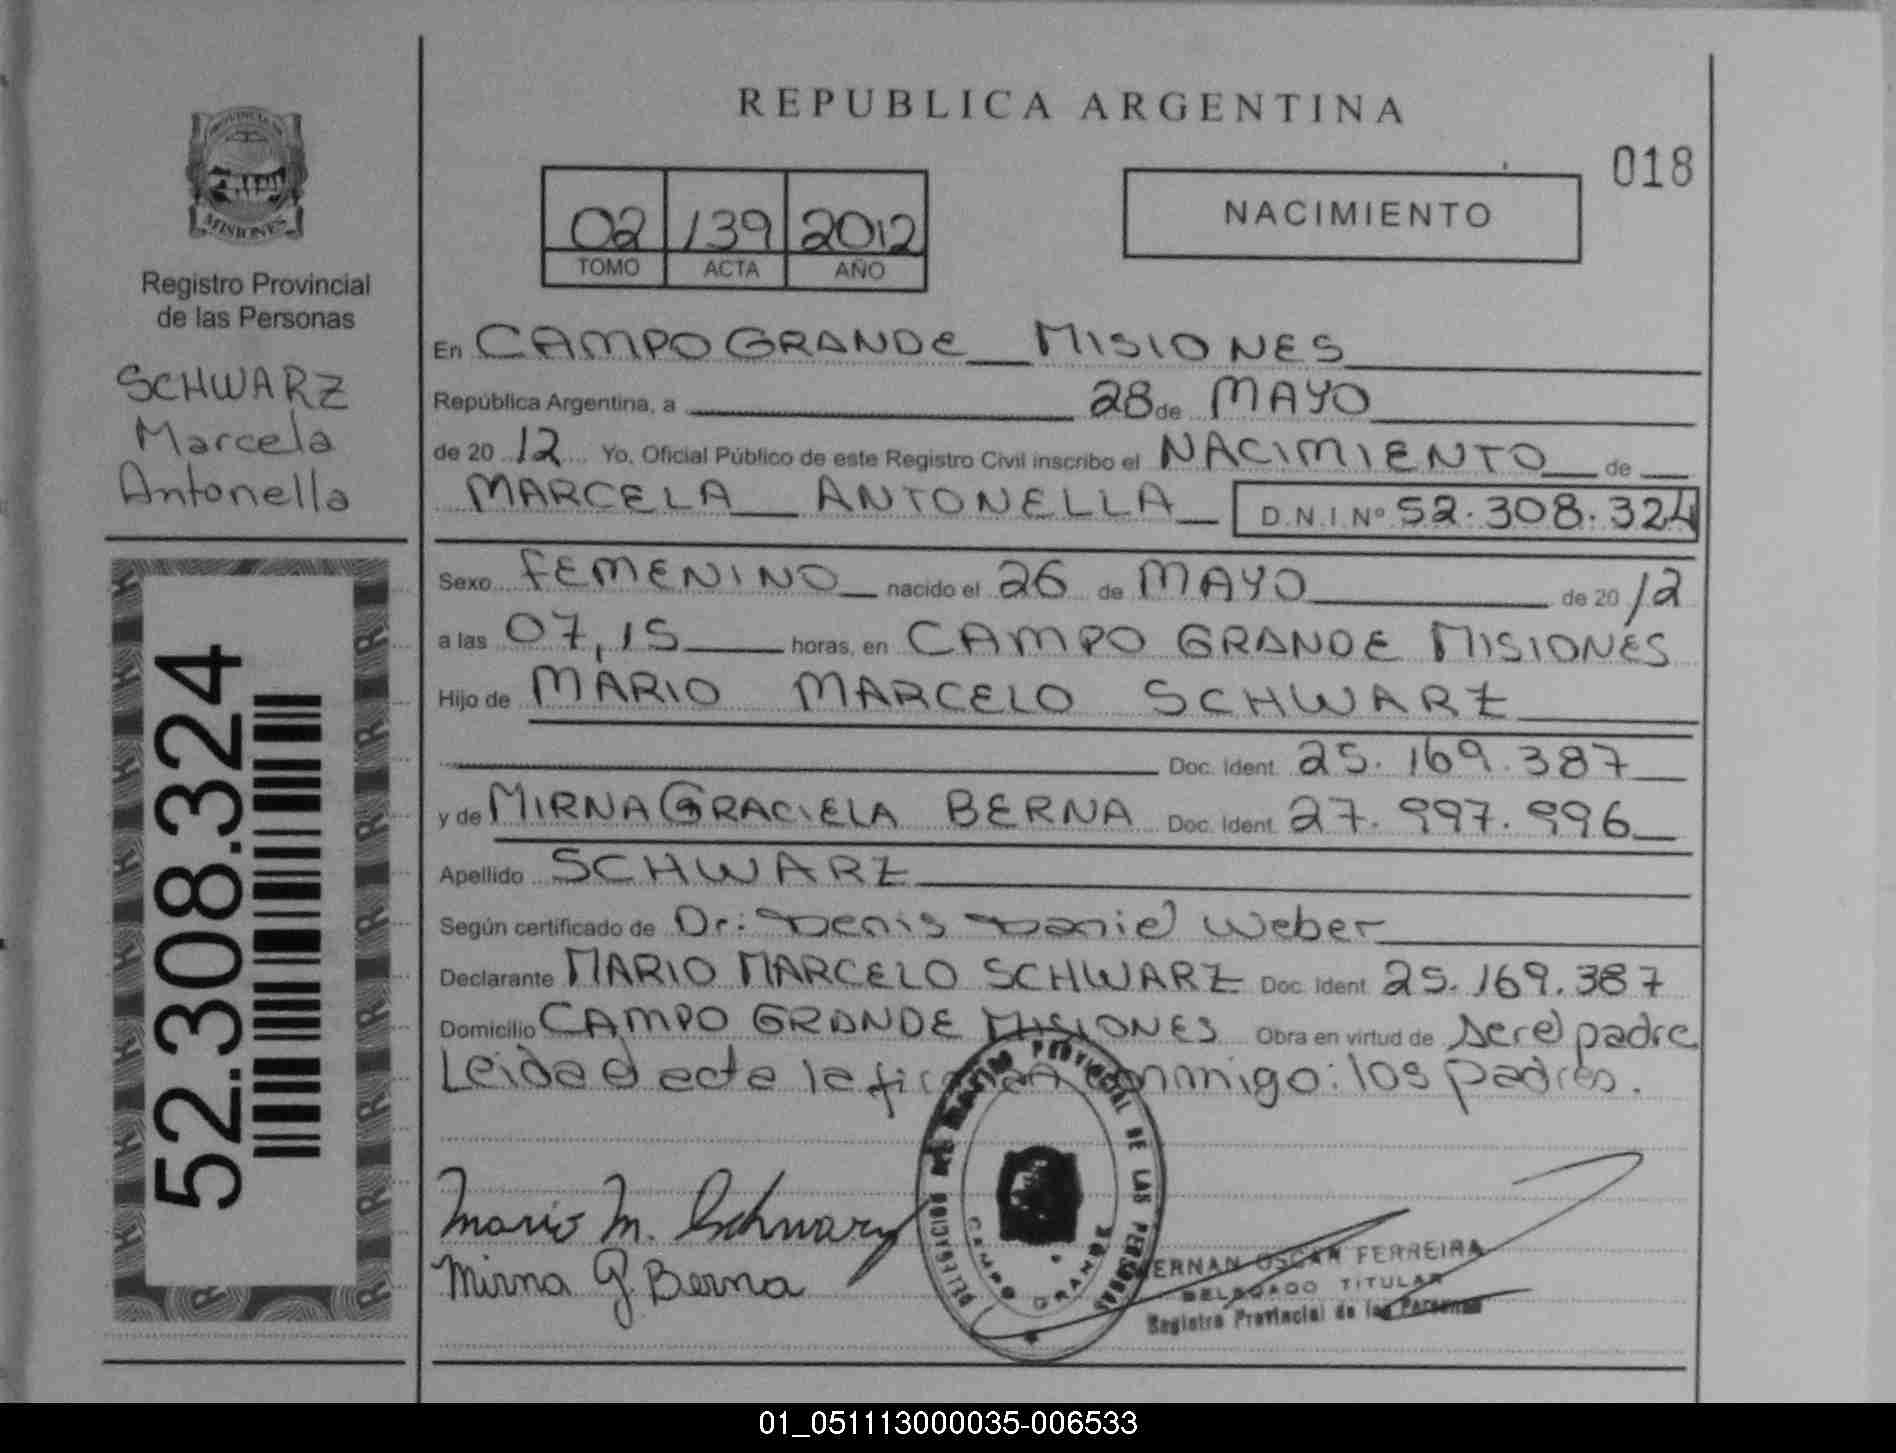 REPUBLICA ARGENTINA
018
PROVINCIA DE
MISIONES
Registro Provincial
de las Personas
SCHWARZ
Marcela
Antonella
52.308.324
02 139 2012
TOMO ACTA AÑO
NACIMIENTO
En CAMPO GRANDE MISIONES
República Argentina, a 28 de MAYO
de 20 12 Yo, Oficial Público de este Registro Civil inscribo el NACIMIENTO de
MARCELA ANTONELLA D.N.I. Nº 52.308.324
Sexo FEMENINO nacido el 26 de MAYO de 20 12
a las 07,15 horas, en CAMPO GRANDE MISIONES
Hijo de MARIO MARCELO SCHWARZ
Doc. Ident. 25.169.387
y de MIRNA GRACIELA BERNA Doc. Ident. 27.997.996
Apellido SCHWARZ
Según certificado de Dr: Denis Daniel Weber
Declarante MARIO MARCELO SCHWARZ Doc. Ident. 25.169.387
Domicilio CAMPO GRANDE MISIONES Obra en virtud de ser el padre
Leida el acta la firman conmigo: los padres.
Mario M. Schwarz
Mirna G Berna
PROVINCIAL DE LAS PERSONAS
DELEGACION
CAMPO GRANDE
HERNAN OSCAR FERREIRA
DELEGADO TITULAR
Registro Provincial de las Personas
01_051113000035-006533